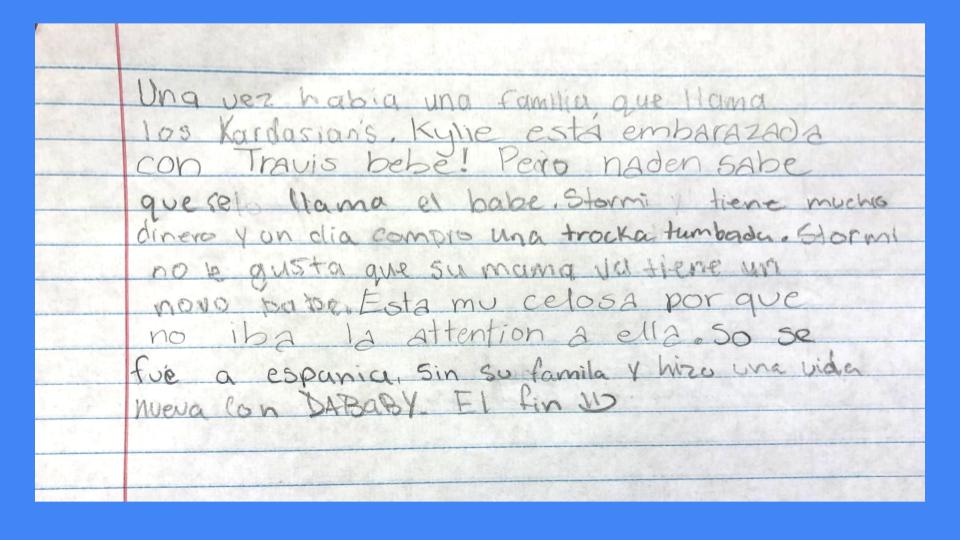 Una vez habia una familia, que llama
los Kardasian's. Kylie está embarazada
con Travis bebe! Pero naden sabe
que se lo llama el babe. Stormi tiene mucho
dinero y un dia compro una trocka tumbada. Stormi
no le gusta que su mama va tiene un
novo babe. Esta mu celosa por que
no iba la attention a ella. So se
fue a espania, sin su famila y hizo una vida
nueva con DABABY. El fin